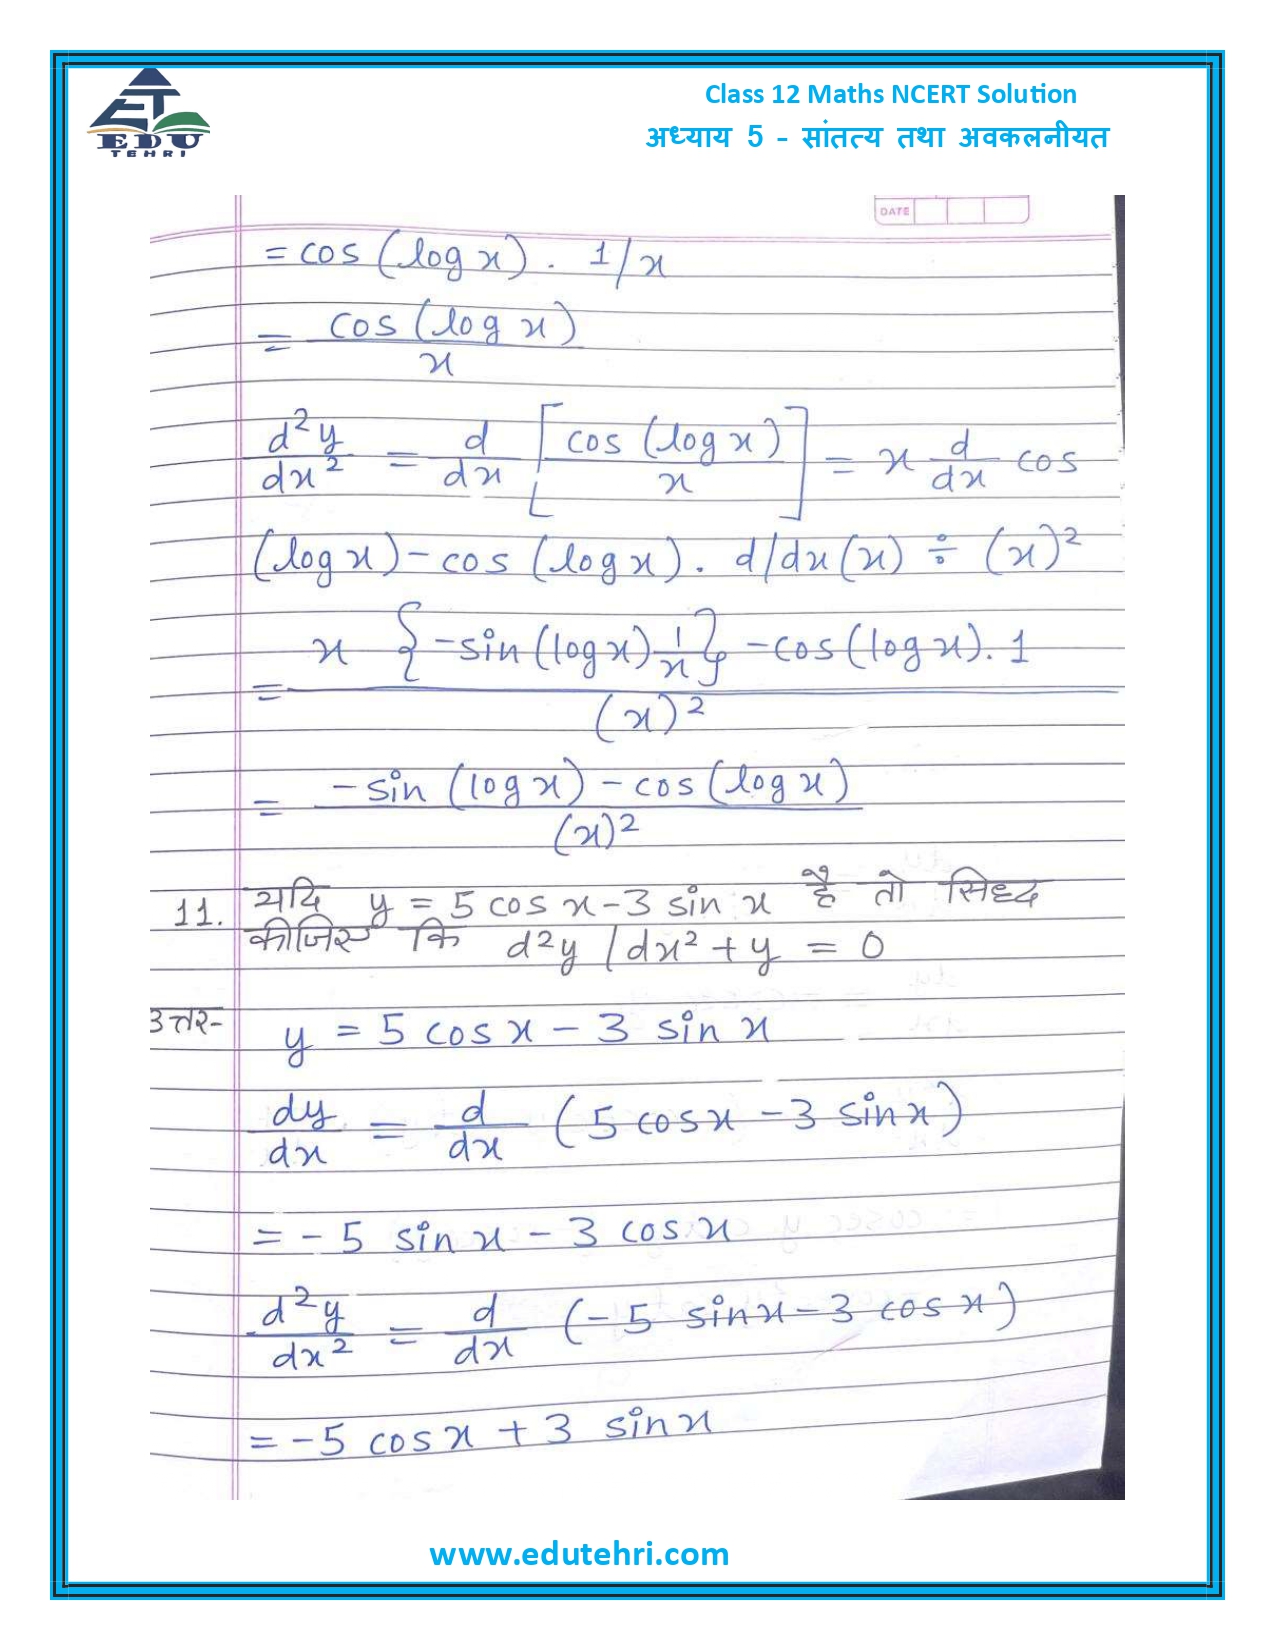 EDU
TEHRI
Class 12 Maths NCERT Solution
अध्याय 5 - सांतत्य तथा अवकलनीयत
DATE
= cos (log x) . 1/x
= cos (log x) / x
d²y/dx² = d/dx [cos (log x) / x] = x d/dx cos
(log x) - cos (log x) . d/dx (x) ÷ (x)²
= x {-sin (log x) 1/x} - cos (log x) . 1 / (x)²
= -sin (log x) - cos (log x) / (x)²
11. यदि y = 5 cos x - 3 sin x है तो सिध्द
कीजिए कि d²y / dx² + y = 0
उत्तर- y = 5 cos x - 3 sin x
dy/dx = d/dx (5 cos x - 3 sin x)
= - 5 sin x - 3 cos x
d²y/dx² = d/dx (- 5 sin x - 3 cos x)
= - 5 cos x + 3 sin x
www.edutehri.com